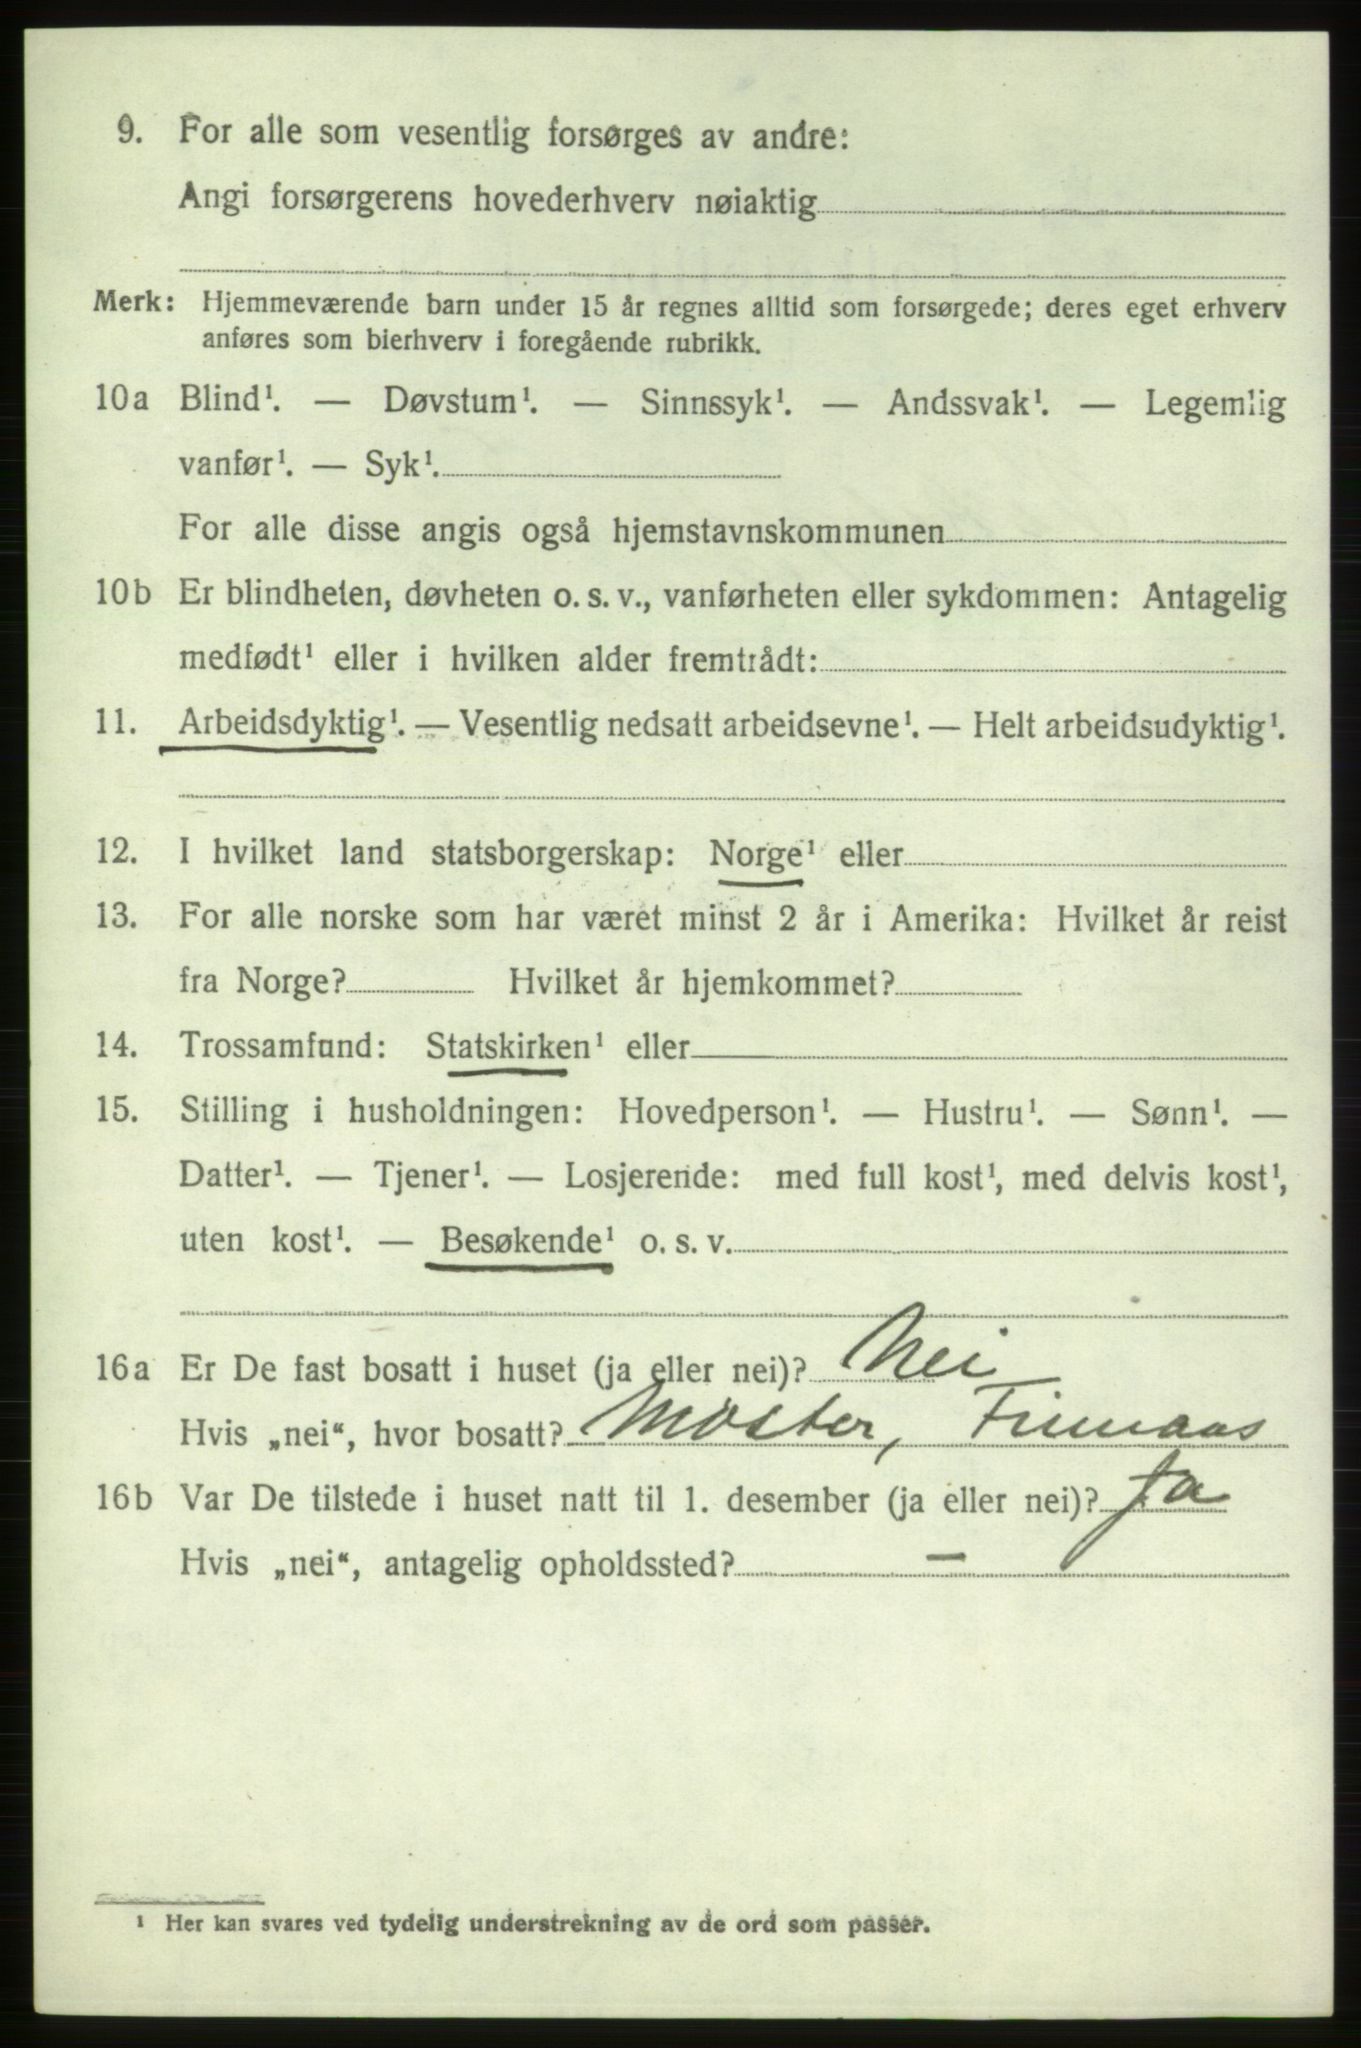 9. For alle som vesentlig forsørges av andre:
Angi forsørgerens hovederhverv nøiaktig
Merk: Hjemmeværende barn under 15 år regnes alltid som forsørgede; deres eget erhverv
anføres som bierhverv i foregående rubrikk.
10a Blind¹. — Døvstum¹. — Sinnssyk¹. — Andssvak¹. — Legemlig
vanfør¹. — Syk¹.
For alle disse angis også hjemstavnskommunen
10b Er blindheten, døvheten o. s. v., vanførheten eller sykdommen: Antagelig
medfødt¹ eller i hvilken alder fremtrådt:
11. Arbeidsdyktig¹. — Vesentlig nedsatt arbeidsevne¹. — Helt arbeidsudyktig¹.
12. I hvilket land statsborgerskap: Norge¹ eller
13. For alle norske som har været minst 2 år i Amerika: Hvilket år reist
fra Norge? Hvilket år hjemkommet?
14. Trossamfund: Statskirken¹ eller
15. Stilling i husholdningen: Hovedperson¹. — Hustru¹. — Sønn¹. —
Datter¹. — Tjener¹. — Losjerende: med full kost¹, med delvis kost¹,
uten kost¹. — Besøkende¹ o. s. v.
16a Er De fast bosatt i huset (ja eller nei)? Nei
Hvis „nei“, hvor bosatt? Moster, Finnaas
16b Var De tilstede i huset natt til 1. desember (ja eller nei)? Ja
Hvis „nei“, antagelig opholdssted? —
¹ Her kan svares ved tydelig understrekning av de ord som passer.